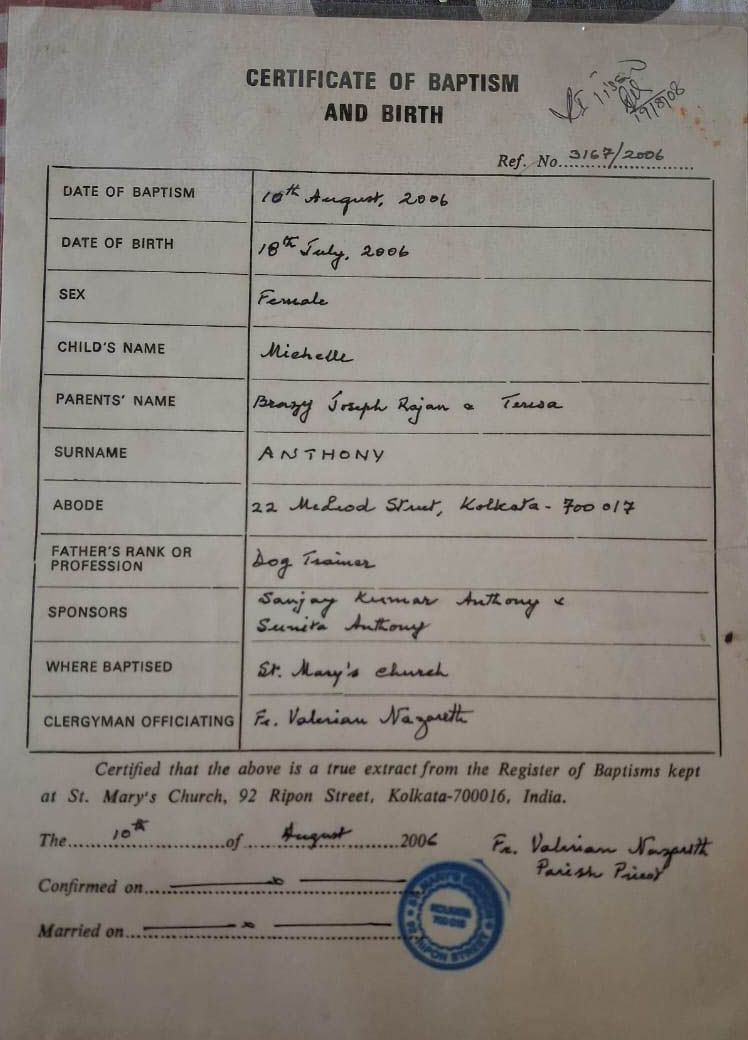 CERTIFICATE OF BAPTISM
AND BIRTH
19/8/08
Ref. No. 3167/2006
DATE OF BAPTISM 10th August, 2006
DATE OF BIRTH 18th July, 2006
SEX Female
CHILD'S NAME Michelle
PARENTS' NAME Brazy Joseph Rajan & Teresa
SURNAME ANTHONY
ABODE 22 McLeod Street, Kolkata - 700 017
FATHER'S RANK OR
PROFESSION Dog Trainer
SPONSORS Sanjay Kumar Anthony &
Sunita Anthony
WHERE BAPTISED St. Mary's church
CLERGYMAN OFFICIATING Fr. Valerian Nazareth
Certified that the above is a true extract from the Register of Baptisms kept
at St. Mary's Church, 92 Ripon Street, Kolkata-700016, India.
The 10th of August 2006 Fr. Valerian Nazareth
Parish Priest
Confirmed on
Married on
ST. MARY'S CHURCH
KOLKATA
700 016
RIPON STREET